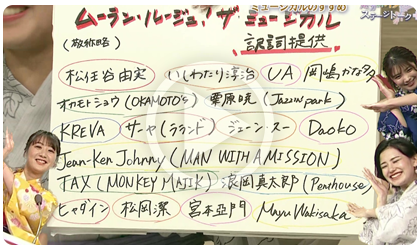 ミュージカルのすすめ
ムーラン・ルージュ!ザ ミュージカル
(敬称略)
訳詞提供
松任谷由実 いしわたり淳治 UA 岡嶋かな多
オカモトショウ(OKAMOTO'S) 栗原暁(Jazzin'park)
KREVA サーヤ(ラランド) ジェーン・スー Daoko
Jean-Ken Johnny(MAN WITH A MISSION)
TAX(MONKEY MAJIK) 浪岡真太郎(Penthouse)
ヒャダイン 松岡潔 宮本亞門 Mayu Wakisaka